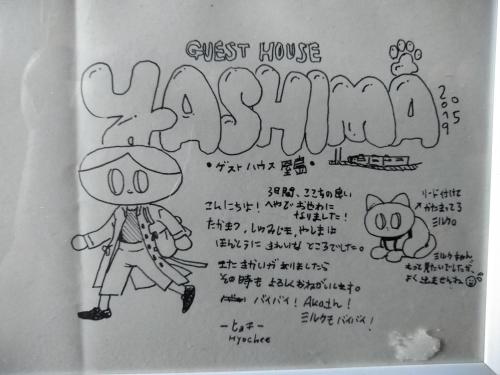 GUEST HOUSE
YASHIMA
2019
05
・ゲストハウス 屋島・
こんにちは！
3日間、ここちの良い
へやで おせわに
なりました！
たかまつ、しゅみじま、やしまは
ほんとうに きれいな ところでした。
またきかいがありましたら
その時も よろしくおねがいします。
バイバイ！ Akaさん！
ミルクもバイバイ！
ーヒョチー
Hyochee
リード付けて
かたまってる
ミルク。
ミルクちゃん、